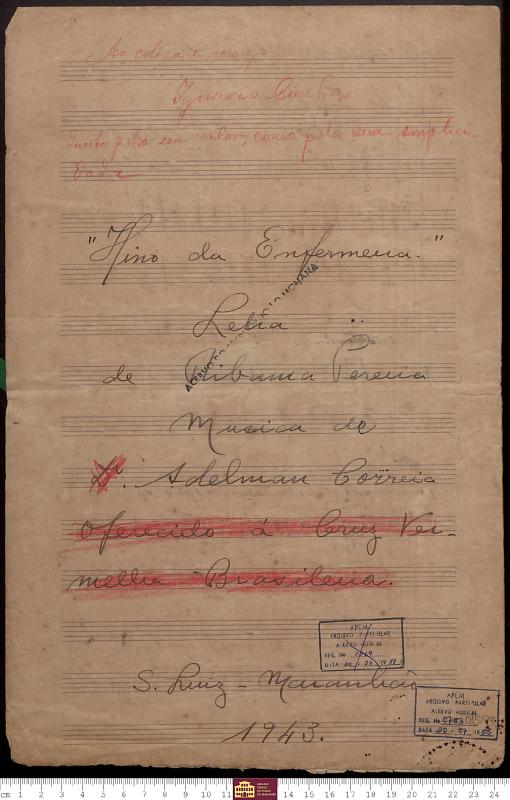 Ao colega e amigo
Ignacio Cunha
tanto pelo seu valor, como pela sua simplici-
dade
"Hino da Enfermeira."
Letra
de Ribama Pereira
Musica de
D. Adelman Corrêia
Oferecido á Cruz Ver-
melha Brasileira.
S. Luiz - Maranhão
1943.
ACERVO JOÃO MOHANA
APEM
ARQUIVO PARTICULAR
ACERVO MUSICAL
REG. No
DATA
APEM
ARQUIVO PARTICULAR
ACERVO MUSICAL
REG. No 0753
DATA
cm 1 2 3 4 5 6 7 8 9 10 11 12 13 14 15 16 17 18 19 20 21 22 23 24